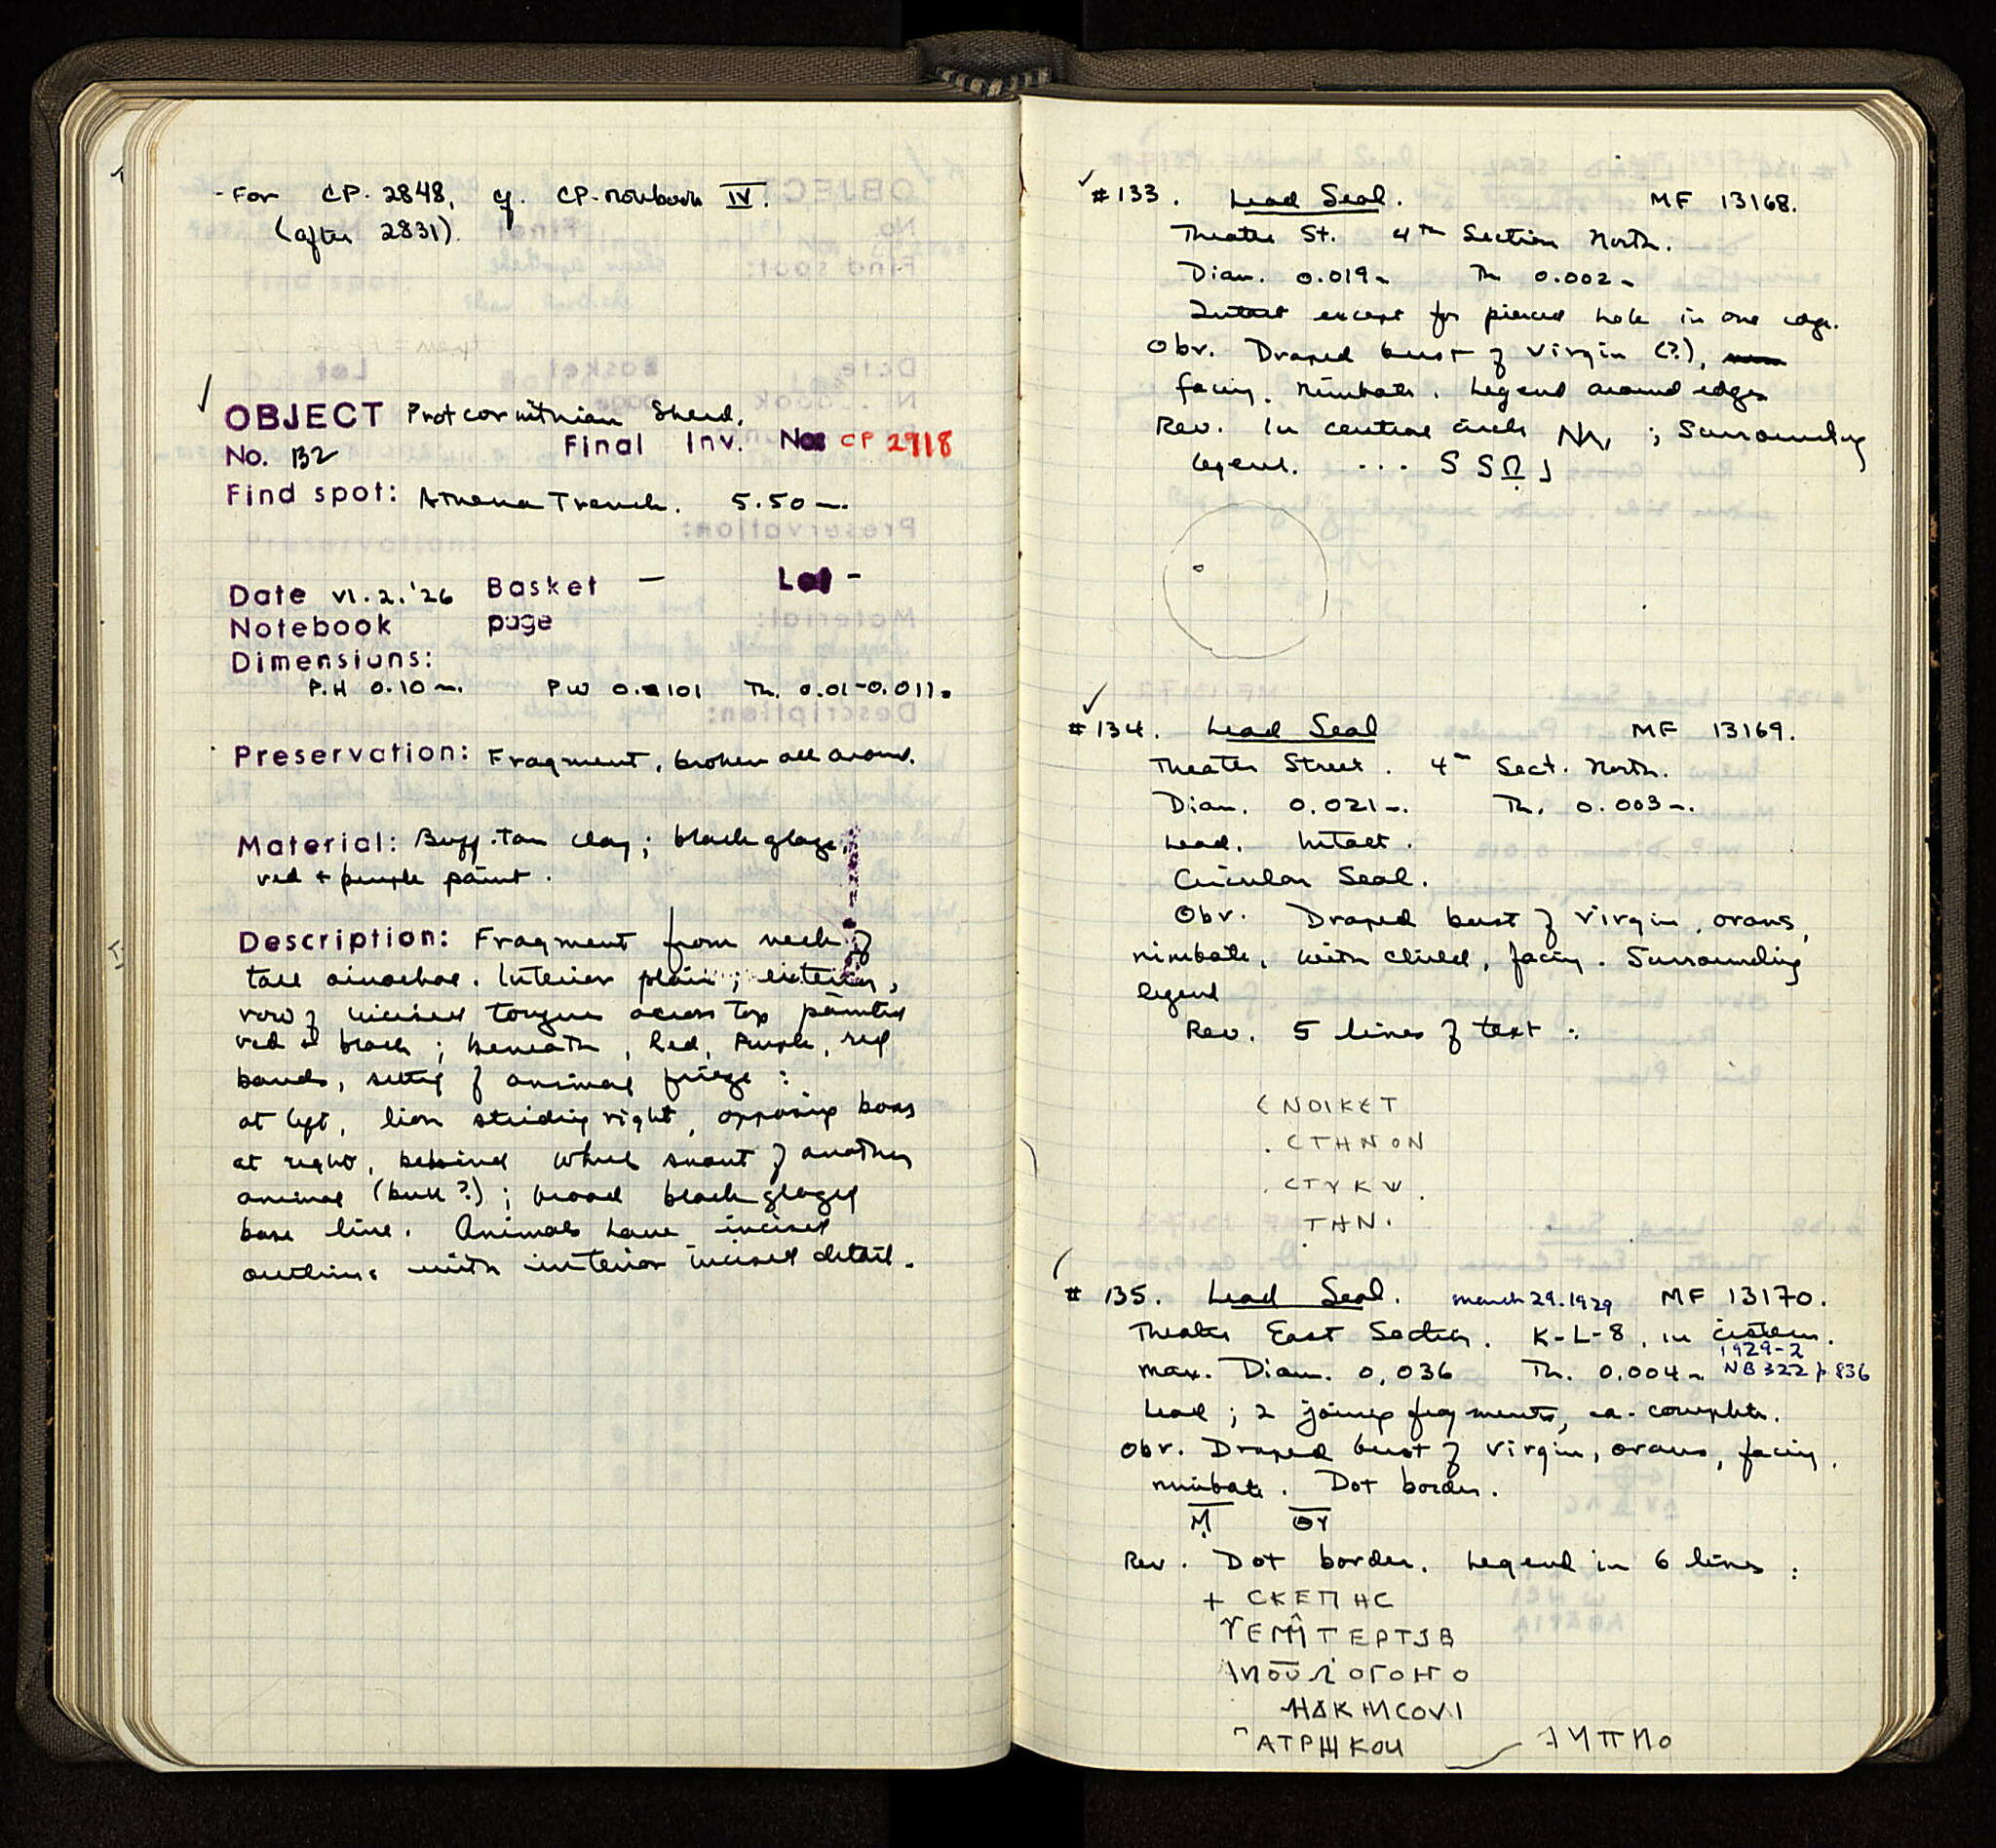 - For CP. 2848, cf. CP. notebook IV.
(after 2831).
OBJECT Protocorinthian Sherd.
No. 132 Final Inv. No: CP 2918
Find spot: Athena Trench. 5.50 m.
Date VI.2.'26 Basket — Lot -
Notebook page
Dimensions:
P.H 0.10 m. P.W 0.101 Th. 0.01-0.011.
Preservation: Fragment, broken all around.
Material: Buff-tan clay; black glaze,
red + purple paint.
Description: Fragment from neck of
tall oinochoe. Interior plain; exterior,
row of incised tongues across top painted
red & black; beneath, Red, Purple, red
bands, setting of animal frieze:
at left, lion striding right, opposing boar
at right, behind which snout of another
animal (bull?); broad black glazed
base line. Animals have incised
outlines with interior incised detail.
#133. Lead Seal. MF 13168.
Theatre St. 4th Section North.
Diam. 0.019m Th 0.002m
Intact except for pierced hole in one edge.
Obv. Draped bust of Virgin (?),
facing. Nimbate. Legend around edges
Rev. In central circle ; Surrounding
legend. ... S S Ω
#134. Lead Seal MF 13169.
Theater Street. 4th Sect. North.
Diam. 0.021m. Th. 0.003m.
Lead. Intact.
Circular Seal.
Obv. Draped bust of Virgin, orans,
nimbate, with child, facing. Surrounding
legend
Rev. 5 lines of text:
( NOIKЄT
. CTHNON
. CTYKW.
THN.
#135. Lead Seal. March 29.1929 MF 13170.
Theatre East Section. K-L-8, in cistern.
1929-2
max. Diam. 0,036 Th. 0.004m NB 322 p 836
Lead; 2 joining fragments, ca. complete.
Obv. Draped bust of Virgin, orans, facing,
nimbate. Dot border.
M ΘΥ
Rev. Dot border. Legend in 6 lines:
+ CKEΠHC